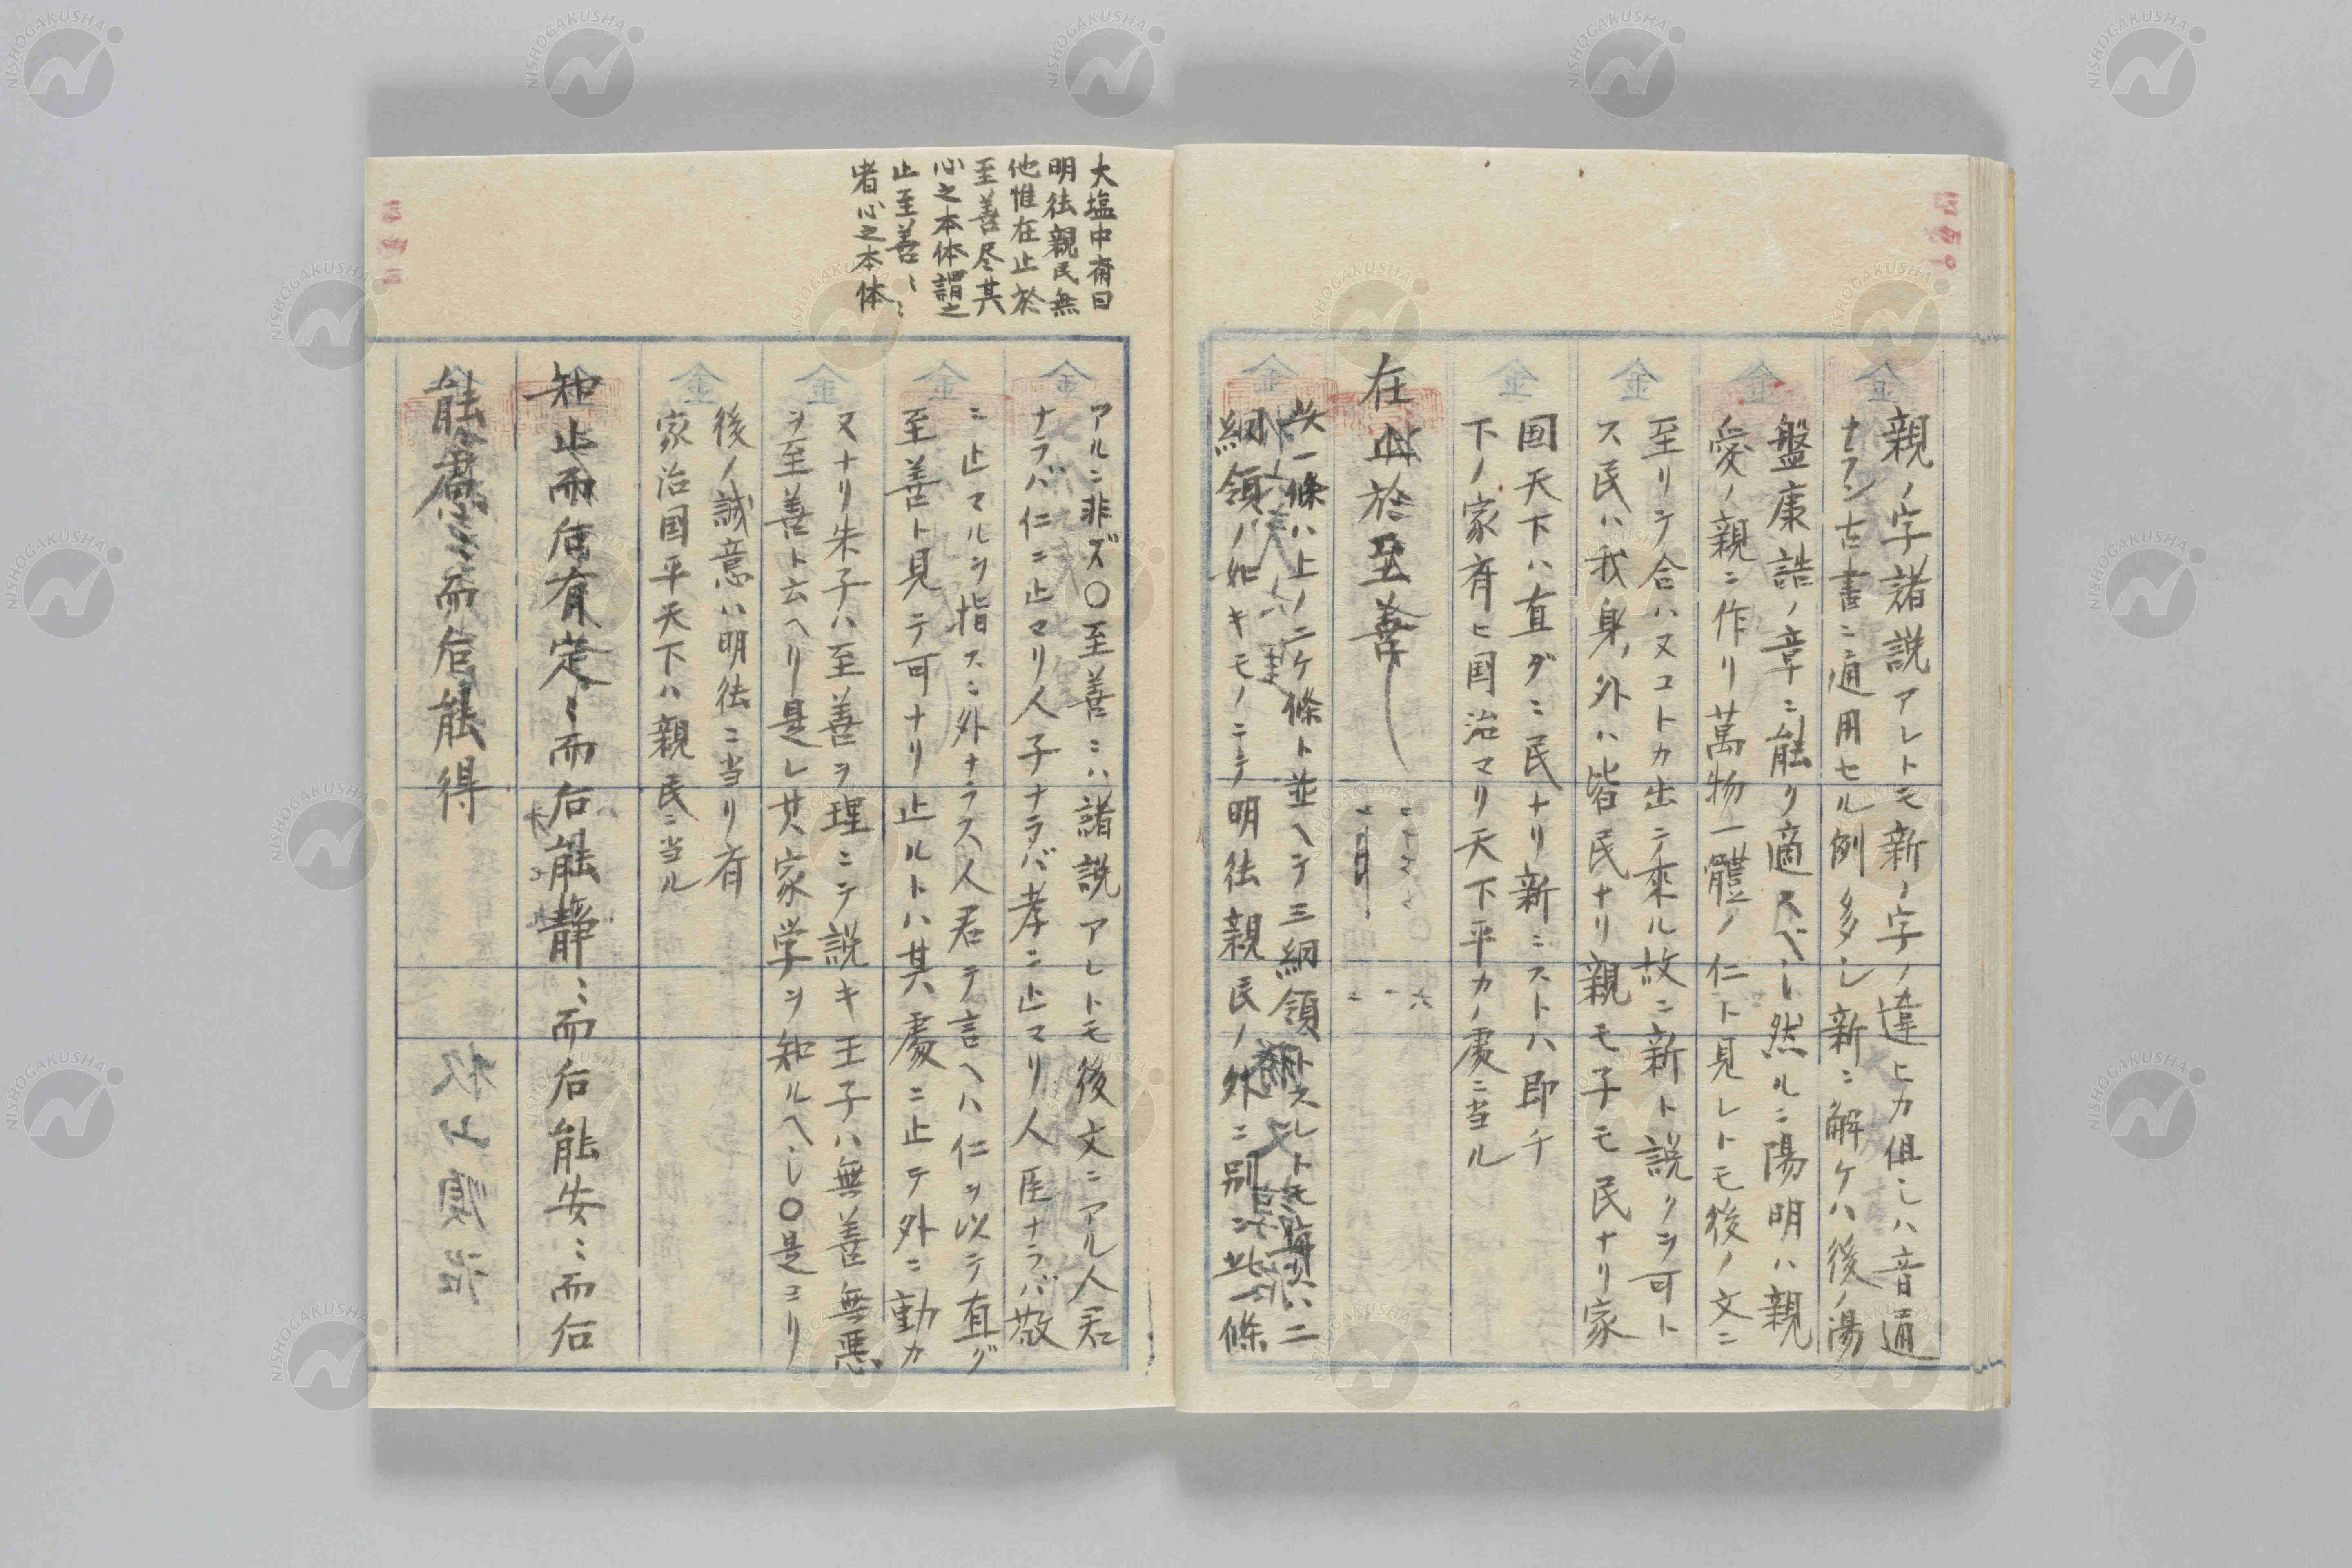 親ノ字諸説アレトモ新ノ字ノ違ヒカ但シハ音通
ナラン古書ニ通用セル例多シ新ニ解ケハ後ノ湯
盤康誥ノ章ニ能ク適スベシ然ルニ陽明ハ親
愛ノ親ニ作リ萬物一體ノ仁ト見レトモ後ノ文ニ
至リテ合ハヌコトカ出テ來ル故ニ新ト説クヲ可ト
ス民ハ我身ノ外ハ皆民ナリ親モ子モ民ナリ家
国天下ハ直ダニ民ナリ新ニストハ即チ
下ノ家斉ヒ国治マリ天下平カノ處ニ当ル
在止於至善
此一條ハ上ノ二ケ條ト並ヘテ三綱領トスレトモ実ハ二
綱領ノ如キモノニテ明徳親民ノ外ニ別ニ此一條
大塩中斎曰
明徳親民無
他惟在止於
至善尽其
心之本体謂之
止至善〻〻
者心之本体
アルニ非ズ〇至善ニハ諸説アレトモ後文ニアル人君
ナラバ仁ニ止マリ人子ナラバ孝ニ止マリ人臣ナラバ敬
ニ止マルヲ指スニ外ナラス人君テ言ヘハ仁ヲ以テ直グ
至善ト見テ可ナリ止ルトハ其處ニ止テ外ニ動カ
ヌナリ朱子ハ至善ヲ理ニテ説キ王子ハ無善無悪
ヲ至善ト云ヘリ是レ其家学ヲ知ルヘシ〇是ヨリ
後ノ誠意ハ明徳ニ当リ斉
家治国平天下ハ親民ニ当ル
知止而后有定〻而后能静〻而后能安〻而后
能慮〻而后能得